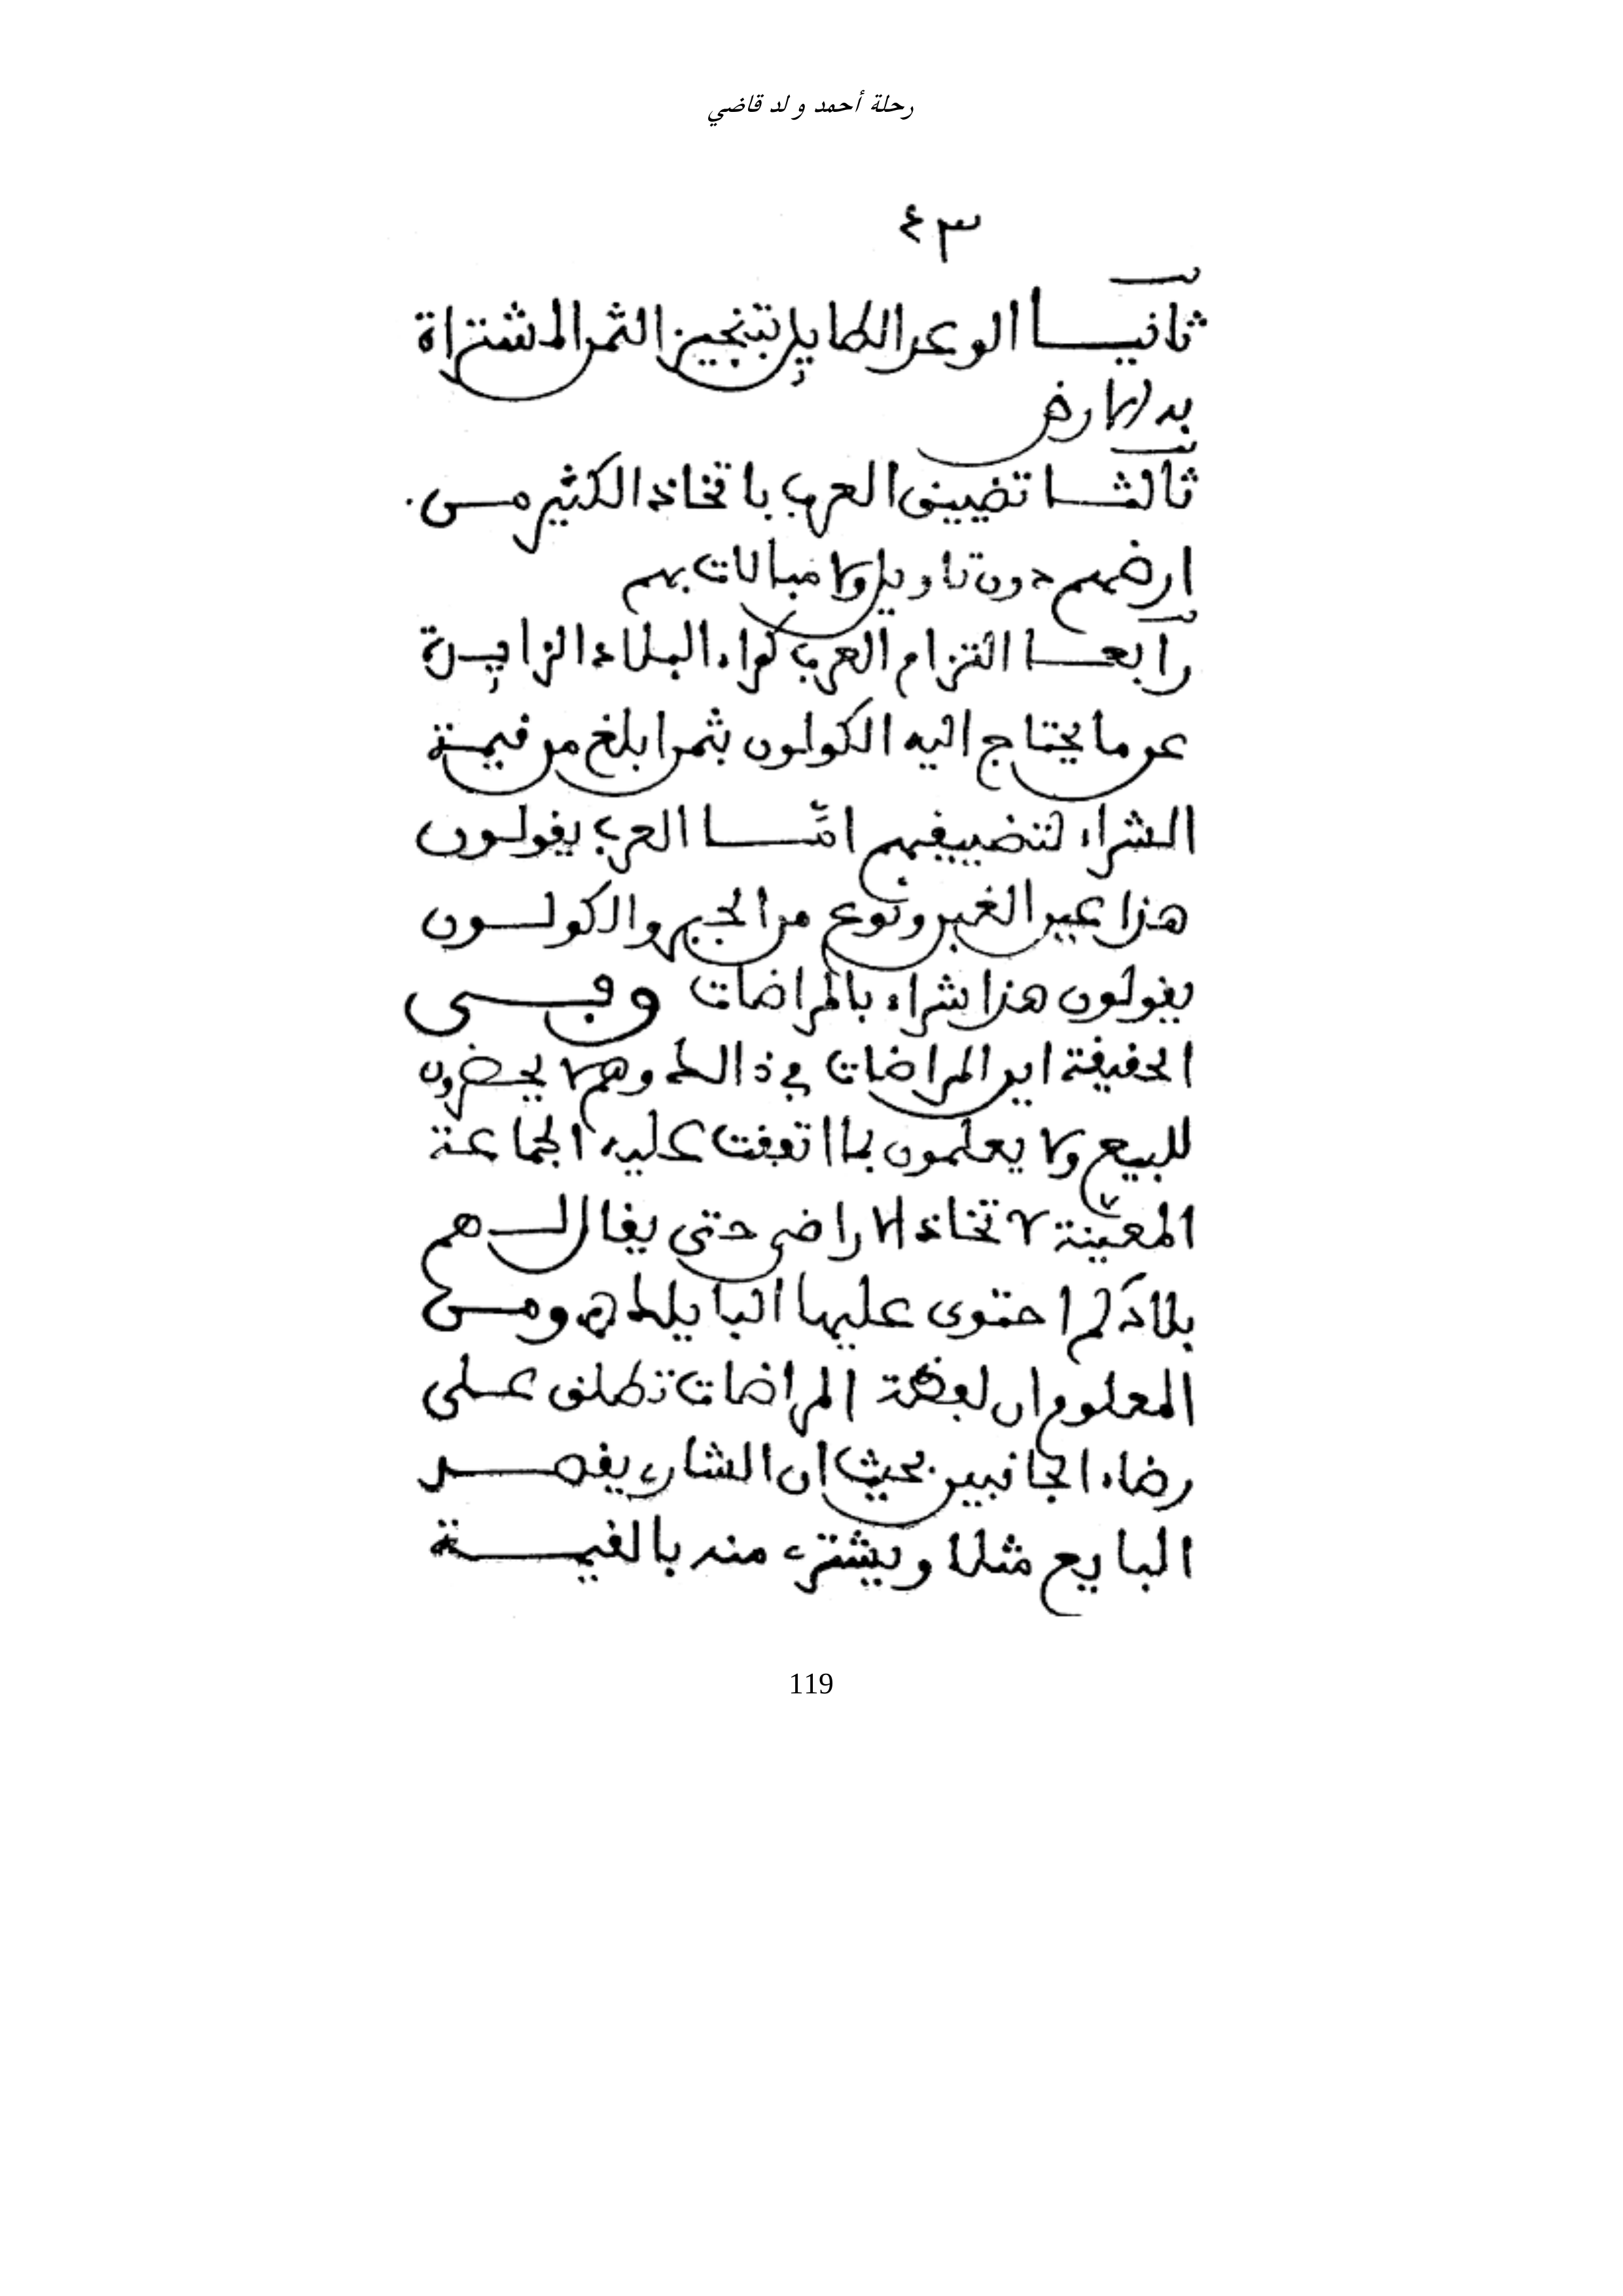 رحلة أحمد ولد قاضي
٤٣
ثانيا الوعد الطايل بتنجيز الثمن المشتراة
به الارض
ثالثا تضييق العرب باتخاذ الكثير من
ارضهم دون تاويل ولا مبالات بهم
رابعا التزام العرب كراء البلاد الزايدة
عن ما يحتاج اليه الكولون بثمن ابلغ من قيمة
الشراء لتضييقهم امّا العرب يقولون
هذا عين الغبن ونوع من الجبر والكولون
يقولون هذا شراء بالمراضات وفي
الحقيقة اين المراضات في ذالك وهم لا يحضرون
للبيع ولا يعلمون بما اتفقت عليه الجماعة
المعيّنة لاتخاذ الاراضي حتى يقال لهم
بلادكم احتوى عليها البايلك ومن
المعلوم ان لفظة المراضات تطلق على
رضاء الجانبين بحيث ان الشاري يقصد
البايع مثلا ويشتري منه بالقيمة
119